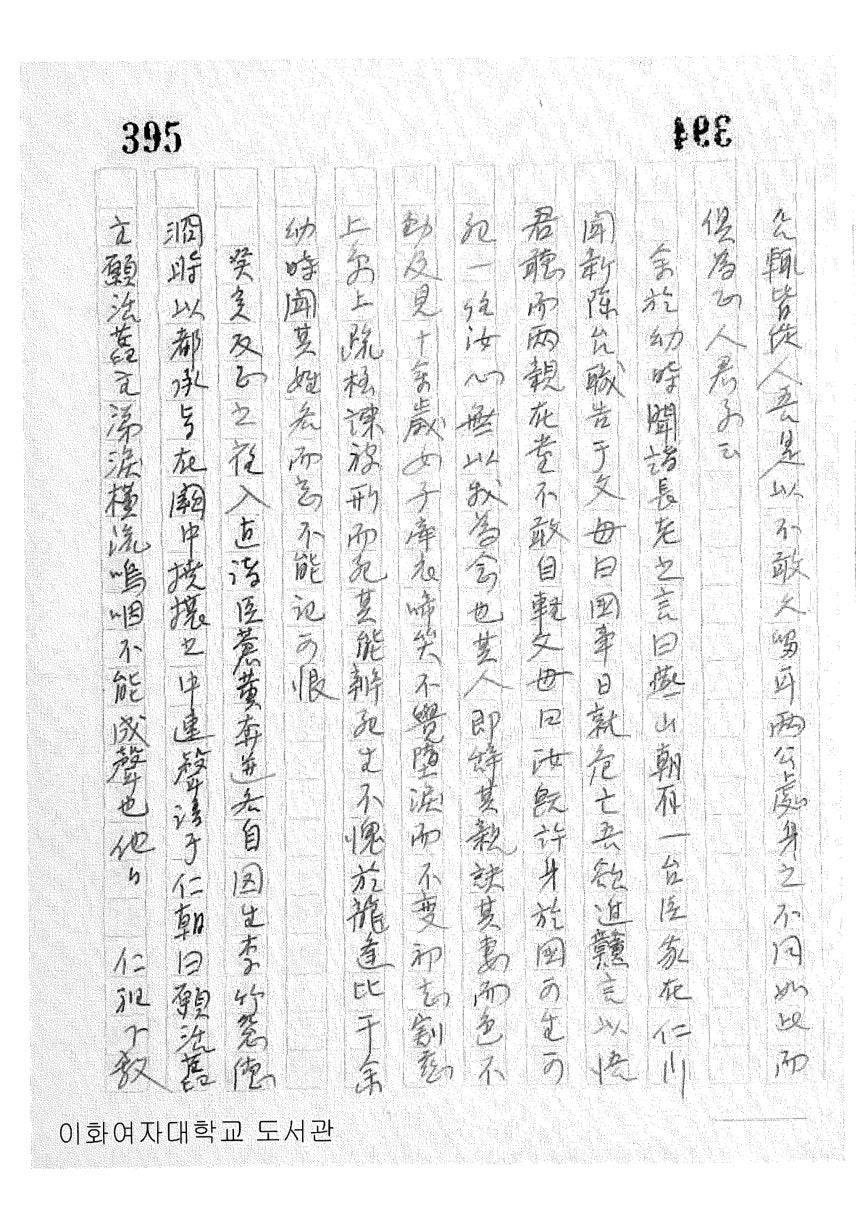 395
394
公輒皆從人吾是以不敢久留耳兩公處身之不同如此而
俱爲正人君子云
余於幼時聞諸長老之言曰燕山朝有一台臣家在仁川
聞新除台職告于父母曰國事日就危亡吾欲進讜言以悟
君聽而兩親在堂不敢自輕父母曰汝旣許身於國可生可
死一任汝心無以我爲念也其人即辭其親訣其妻而色不
動及見十余歲女子牽衣啼笑不覺墮淚而不變初志割慈
上京上疏極諫被刑而死其能辦死生不愧於龍逢比干余
幼時聞其姓名而忘不能記可恨
癸亥反正之夜入直諸臣蒼黃奔逬各自圖生李竹窓德
泂時以都承旨在闕中擾攘之中連聲請于仁朝曰願活舊
主願活舊主涕淚橫流嗚咽不能成聲也他日 仁祖下敎
이화여자대학교 도서관